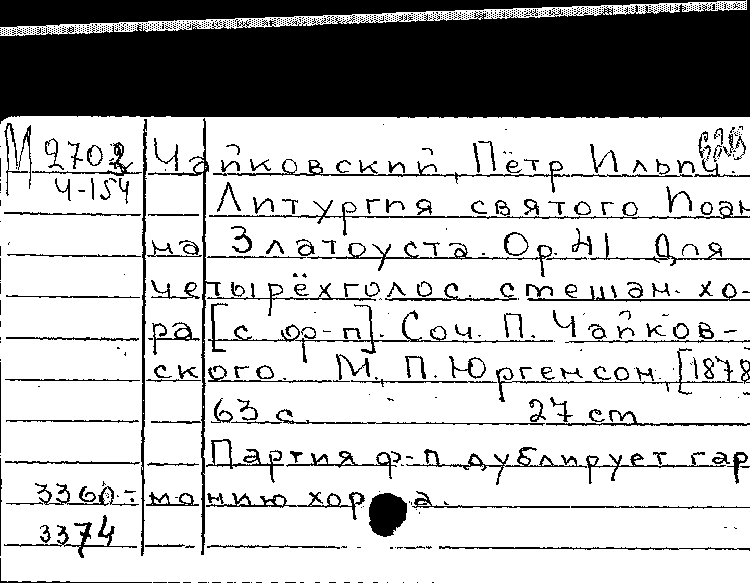 М 2702 Чайковский, Пётр Ильич. 628
Ч-154 Литургия святого Иоан
на Златоуста. Op. 41 Для
четырёхголос. смешан. хо-
ра [с ф-п]. Соч. П. Чайков-
ского. М., П. Юргенсон, [1878
63 с. 27 cm
Партия ф-п дублирует гар
3360- монию хора.
3374